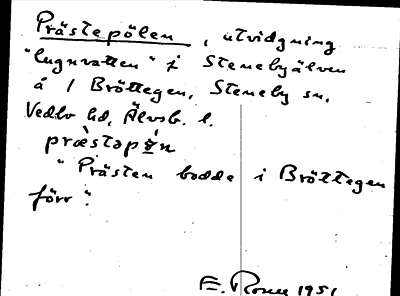 Prästepölen, utvidgning
"lugnvatten" i Stenebyälven
å 1 Bröttegen, Steneby sn,
Vedbo hd, Älvsb. l.
præ̀stəpǿ́n
"Prästen bodde i Bröttegen
förr".
E. Rosen 1951